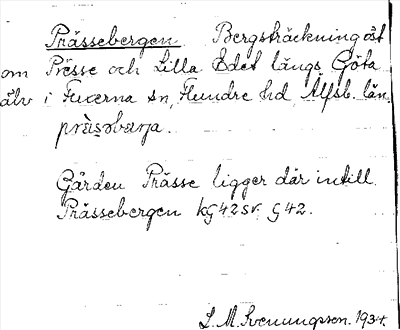 Prässebergen Bergsträckning öst
om Prësse och Lilla Edet längs Göta
älv i Fuxerna sn, Flundre hd, Älfsb. län.
Gården Prässe ligger där intill.
Prässebergen kg 42 sv. g 42.
L. M. Svenungsson. 1934.